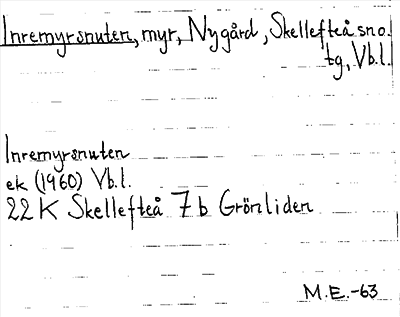 Inremyrsnuten, myr, Nygård, Skellefteå sno.
tg, Vb.l.
Inremyrsnuten
ek (1960) Vb.l.
22 K Skellefteå 7 b Grönliden
M.E.-63